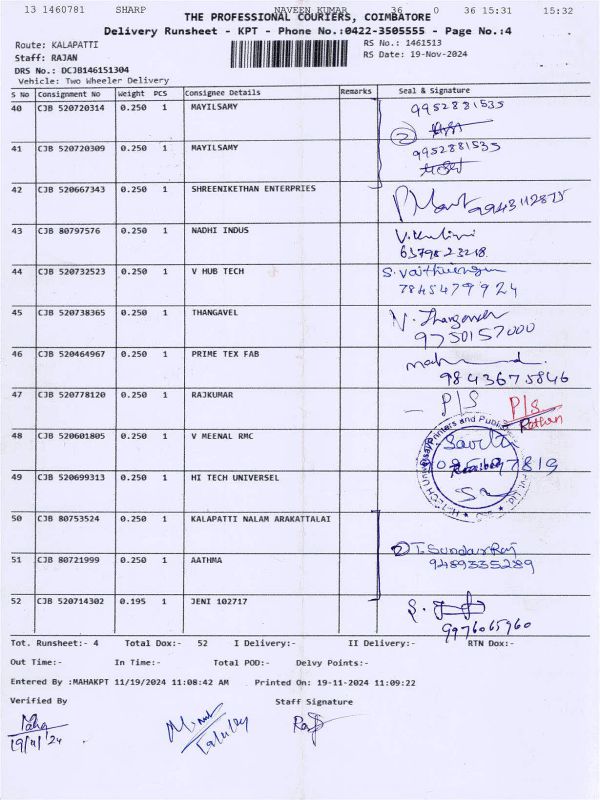 13 1460781 SHARP NAVEEN KUMAR 36 0 36 15:31 15:32
THE PROFESSIONAL COURIERS, COIMBATORE
Delivery Runsheet - KPT - Phone No.:0422-3505555 - Page No.:4
Route: KALAPATTI
RS No.: 1461513
Staff: RAJAN
RS Date: 19-Nov-2024
DRS No.: DCJB146151304
Vehicle: Two Wheeler Delivery
S No Consignment No Weight PCS Consignee Details Remarks Seal & Signature
40 CJB 520720314 0.250 1 MAYILSAMY 9952881535
2
41 CJB 520720309 0.250 1 MAYILSAMY 9952881535
42 CJB 520667343 0.250 1 SHREENIKETHAN ENTERPRIES 9943112875
43 CJB 80797576 0.250 1 NADHI INDUS
6379823218
44 CJB 520732523 0.250 1 V HUB TECH
7845479924
45 CJB 520738365 0.250 1 THANGAVEL
9750157000
46 CJB 520464967 0.250 1 PRIME TEX FAB
9843675846
47 CJB 520778120 0.250 1 RAJKUMAR P/S P/S
48 CJB 520601805 0.250 1 V MEENAL RMC
49 CJB 520699313 0.250 1 HI TECH UNIVERSEL
50 CJB 80753524 0.250 1 KALAPATTI NALAM ARAKATTALAI
51 CJB 80721999 0.250 1 AATHMA 2 T. Sundar Raj
9489335289
52 CJB 520714302 0.195 1 JENI 102717
9976065960
Tot. Runsheet:- 4 Total Dox:- 52 I Delivery:- II Delivery:- RTN Dox:-
Out Time:- In Time:- Total POD:- Delvy Points:-
Entered By :MAHAKPT 11/19/2024 11:08:42 AM Printed On: 19-11-2024 11:09:22
Verified By Staff Signature
Maha
19/11/24